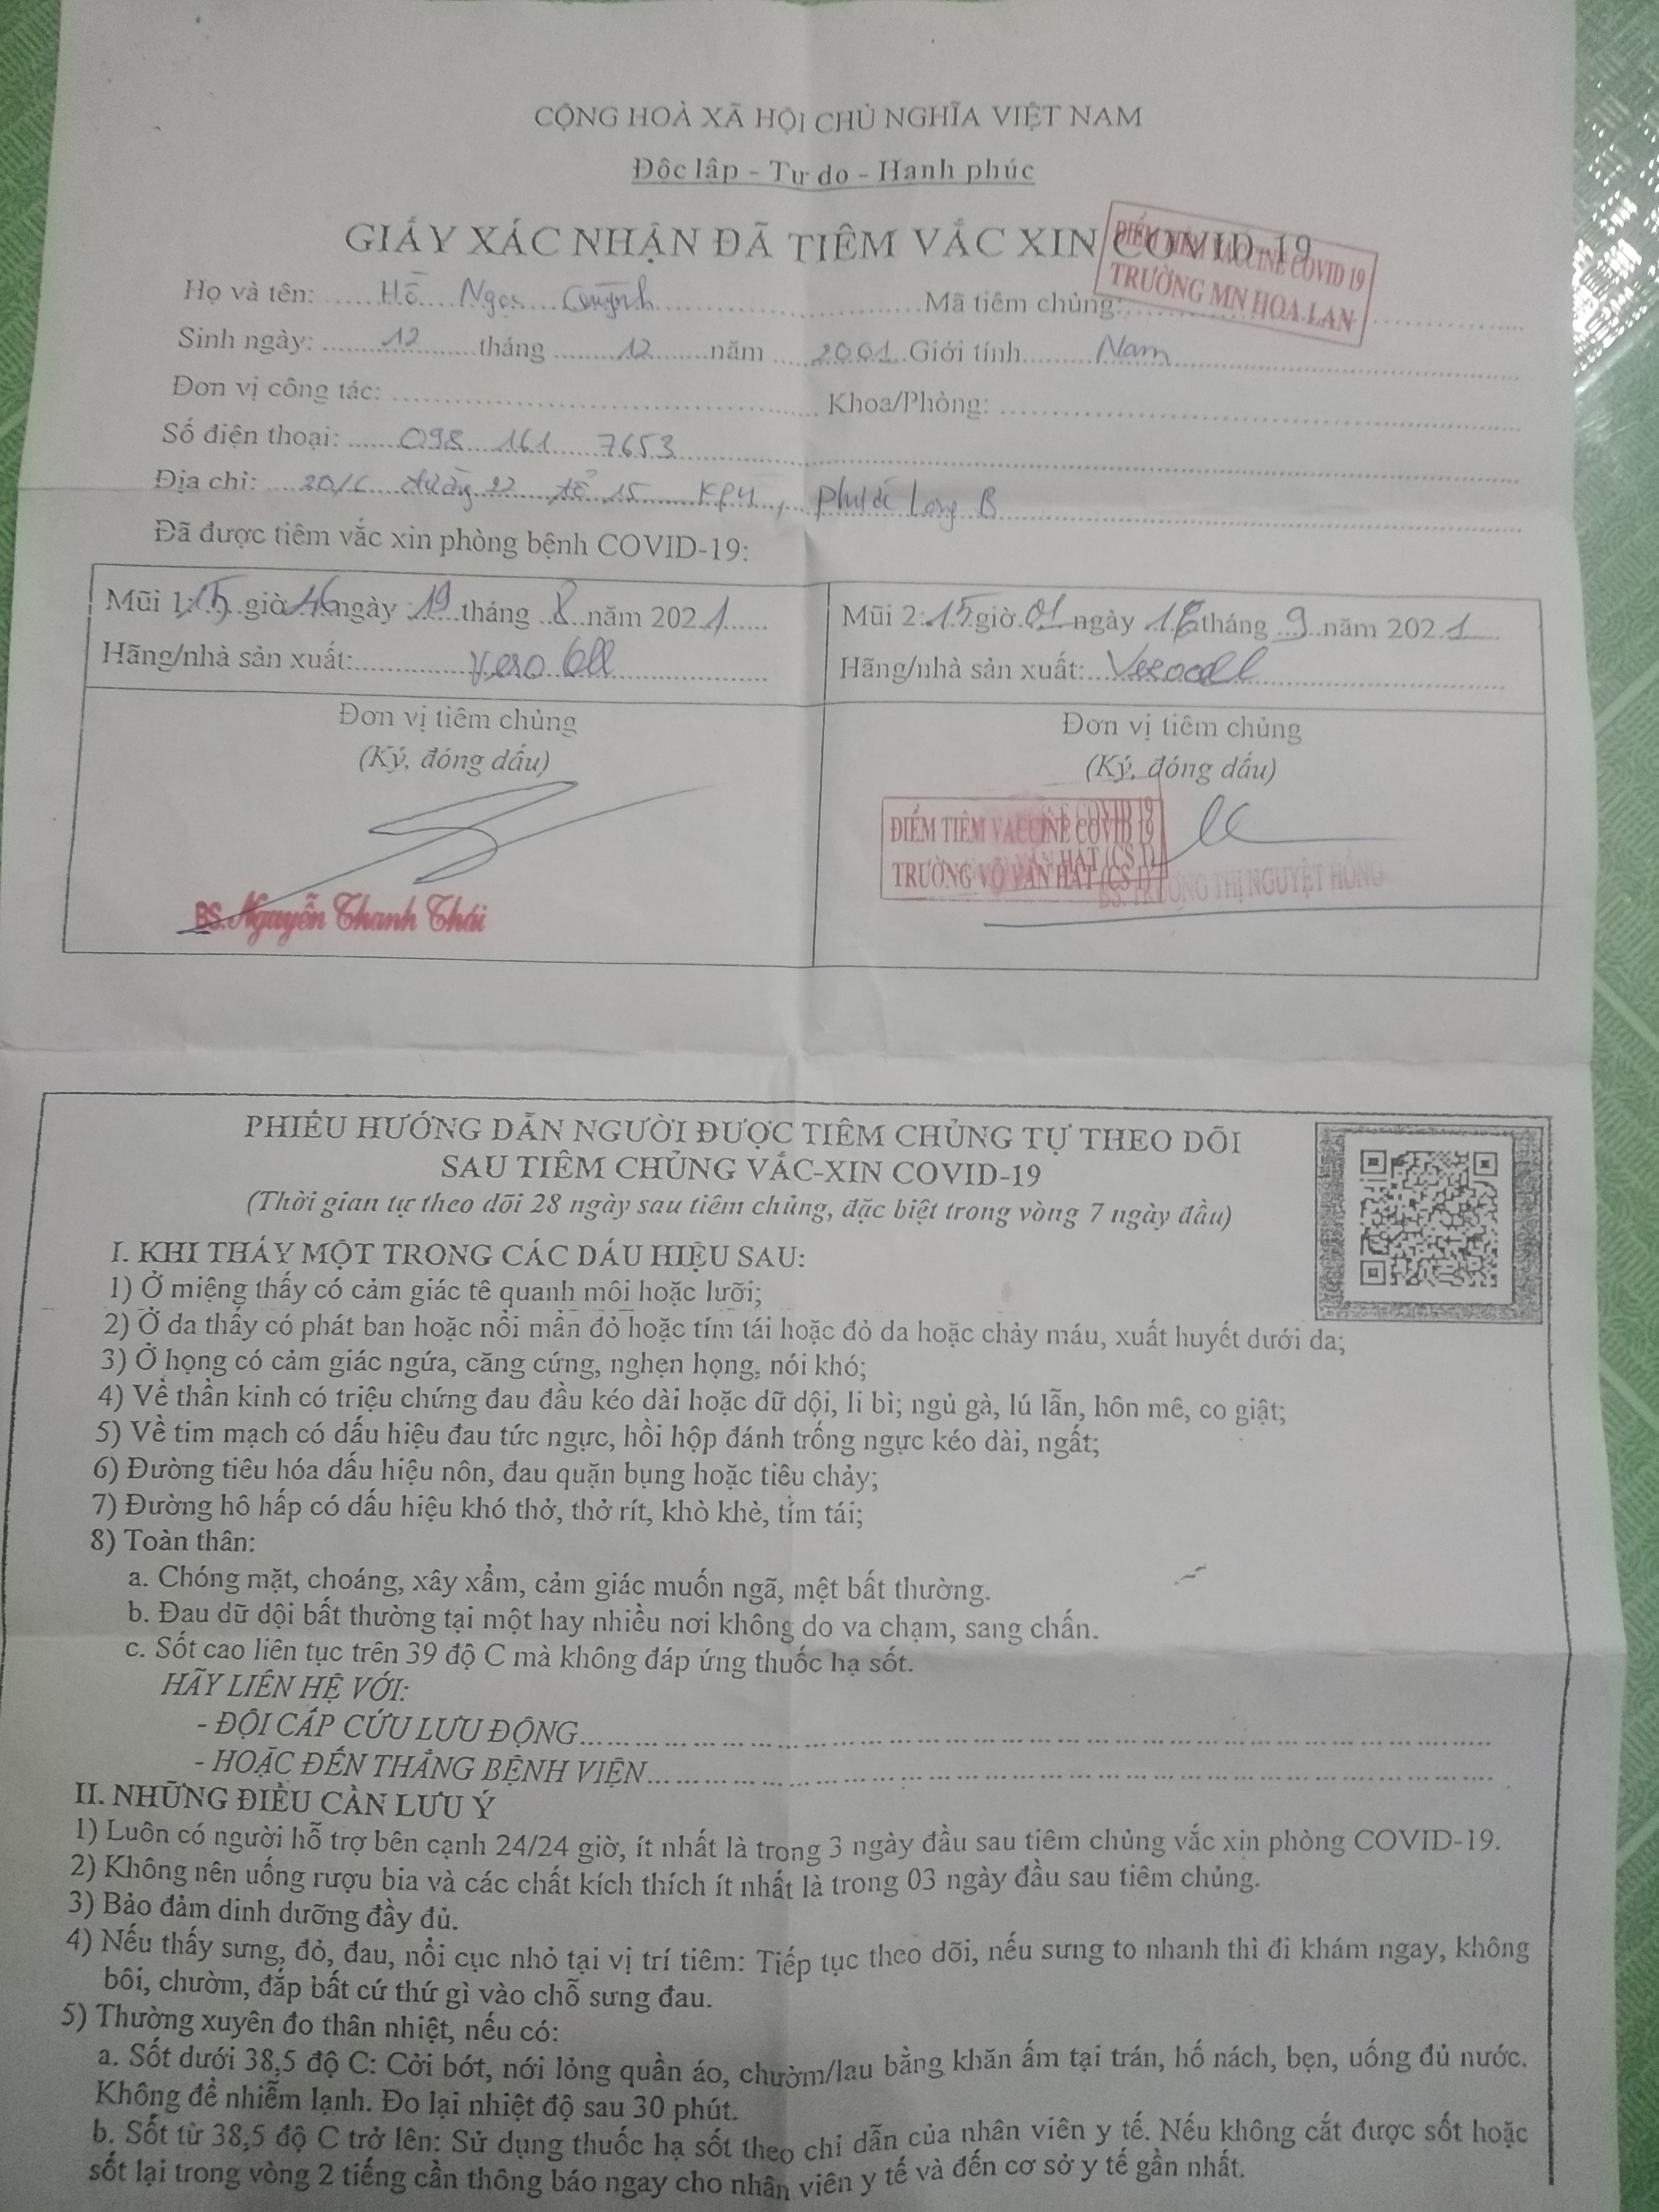 CỘNG HOÀ XÃ HỘI CHỦ NGHĨA VIỆT NAM
Độc lập - Tự do - Hạnh phúc
GIẤY XÁC NHẬN ĐÃ TIÊM VẮC XIN COVID-19
ĐIỂM TIÊM VACCINE COVID 19
TRƯỜNG MN HOA LAN
Họ và tên: Hồ Ngọc Quỳnh Mã tiêm chủng:
Sinh ngày: 12 tháng 12 năm 2001 Giới tính Nam
Đơn vị công tác: Khoa/Phòng:
Số điện thoại: 098 161 7653
Địa chỉ: đường 22 tổ 15 KP4, Phước Long B
Đã được tiêm vắc xin phòng bệnh COVID-19:
Mũi 1: 15 giờ 46 ngày 19 tháng 8 năm 2021
Hãng/nhà sản xuất: Vero Cell
Mũi 2: 15 giờ 01 ngày tháng 9 năm 2021
Hãng/nhà sản xuất: Verocell
Đơn vị tiêm chủng
(Ký, đóng dấu)
BS. Nguyễn Thanh Thái
Đơn vị tiêm chủng
(Ký, đóng dấu)
ĐIỂM TIÊM VACCINE COVID 19
TRƯỜNG VÕ VĂN HÁT (CS 1)
BS. TRƯƠNG THỊ NGUYỆT HỒNG
PHIẾU HƯỚNG DẪN NGƯỜI ĐƯỢC TIÊM CHỦNG TỰ THEO DÕI
SAU TIÊM CHỦNG VẮC-XIN COVID-19
(Thời gian tự theo dõi 28 ngày sau tiêm chủng, đặc biệt trong vòng 7 ngày đầu)
I. KHI THẤY MỘT TRONG CÁC DẤU HIỆU SAU:
1) Ở miệng thấy có cảm giác tê quanh môi hoặc lưỡi;
2) Ở da thấy có phát ban hoặc nổi mẩn đỏ hoặc tím tái hoặc đỏ da hoặc chảy máu, xuất huyết dưới da;
3) Ở họng có cảm giác ngứa, căng cứng, nghẹn họng, nói khó;
4) Về thần kinh có triệu chứng đau đầu kéo dài hoặc dữ dội, li bì; ngủ gà, lú lẫn, hôn mê, co giật;
5) Về tim mạch có dấu hiệu đau tức ngực, hồi hộp đánh trống ngực kéo dài, ngất;
6) Đường tiêu hóa dấu hiệu nôn, đau quặn bụng hoặc tiêu chảy;
7) Đường hô hấp có dấu hiệu khó thở, thở rít, khò khè, tím tái;
8) Toàn thân:
a. Chóng mặt, choáng, xây xẩm, cảm giác muốn ngã, mệt bất thường.
b. Đau dữ dội bất thường tại một hay nhiều nơi không do va chạm, sang chấn.
c. Sốt cao liên tục trên 39 độ C mà không đáp ứng thuốc hạ sốt.
HÃY LIÊN HỆ VỚI:
- ĐỘI CẤP CỨU LƯU ĐỘNG
- HOẶC ĐẾN THẲNG BỆNH VIỆN
II. NHỮNG ĐIỀU CẦN LƯU Ý
1) Luôn có người hỗ trợ bên cạnh 24/24 giờ, ít nhất là trong 3 ngày đầu sau tiêm chủng vắc xin phòng COVID-19.
2) Không nên uống rượu bia và các chất kích thích ít nhất là trong 03 ngày đầu sau tiêm chủng.
3) Bảo đảm dinh dưỡng đầy đủ.
4) Nếu thấy sưng, đỏ, đau, nổi cục nhỏ tại vị trí tiêm: Tiếp tục theo dõi, nếu sưng to nhanh thì đi khám ngay, không
bôi, chườm, đắp bất cứ thứ gì vào chỗ sưng đau.
5) Thường xuyên đo thân nhiệt, nếu có:
a. Sốt dưới 38,5 độ C: Cởi bớt, nới lỏng quần áo, chườm/lau bằng khăn ấm tại trán, hố nách, bẹn, uống đủ nước.
Không để nhiễm lạnh. Đo lại nhiệt độ sau 30 phút.
b. Sốt từ 38,5 độ C trở lên: Sử dụng thuốc hạ sốt theo chỉ dẫn của nhân viên y tế. Nếu không cắt được sốt hoặc
sốt lại trong vòng 2 tiếng cần thông báo ngay cho nhân viên y tế và đến cơ sở y tế gần nhất.